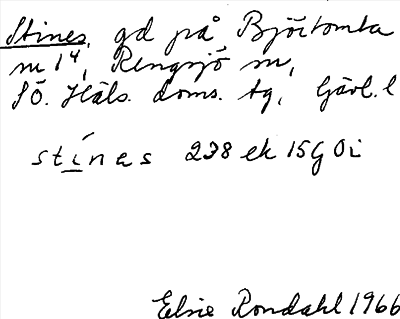 Stines, gd på Björtomta
nr 1⁴, Rengsjö sn,
Sö. Häls. doms. tg, Gävl. l
stínes 238 ek 15G0i
Elsie Rondahl 1966